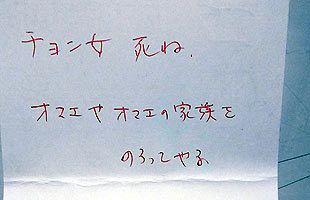 チョン女 死ね.
オマエや オマエの家族を
のろってやる